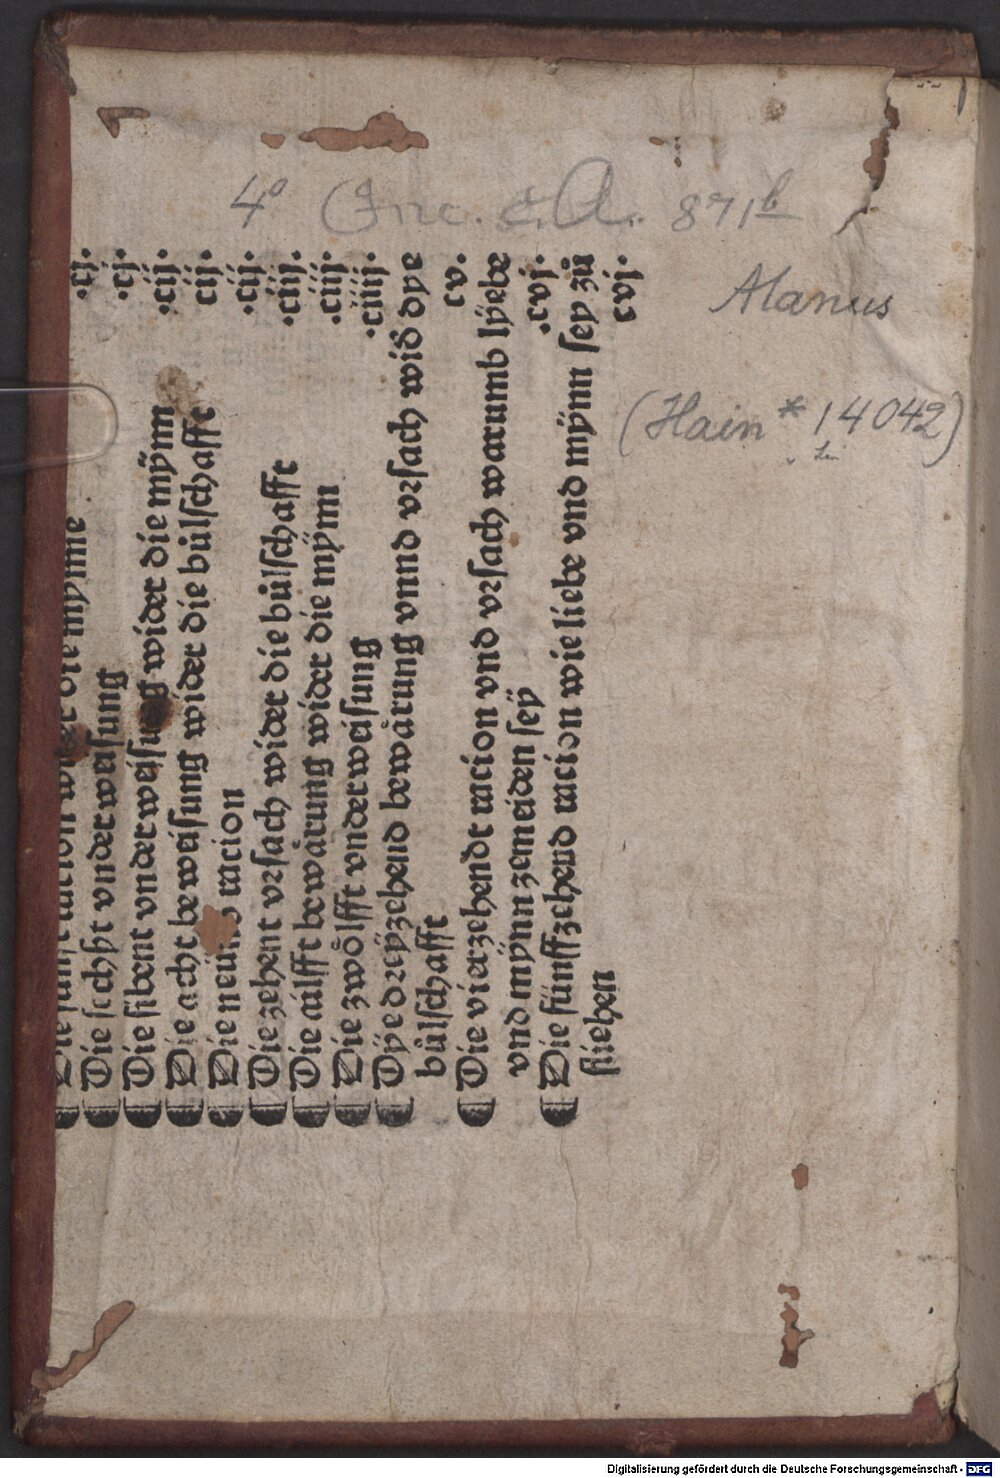 4° Inc. c. A. 871b
Alanus
(Hain * 14042)
Die fünfft racion wider die mynne .cj.
Die sechst vnderweisung .cj.
Die sibent vnderweisung wider die mÿnn .cij.
Die acht beweisung wider die bůlschafft cij.
Die neünd racion .cij.
Die zehent vrsach wider die bůlschafft .ciij.
Die ailfft bewårung wider die mÿnn .ciij.
Die zwölfft vnderweisung .ciiij.
Dÿe dreÿzehend bewårung vnnd vrsach wid dye
bůlschafft cv.
Die vierzehendt racion vnd vrsach warumb lÿebe
vnd mÿnn zemeiden seÿ .cvj.
Die fünffzehend racion wie liebe vnd mÿnn sey zů
fliehen cvj.
Digitalisierung gefördert durch die Deutsche Forschungsgemeinschaft - DFG